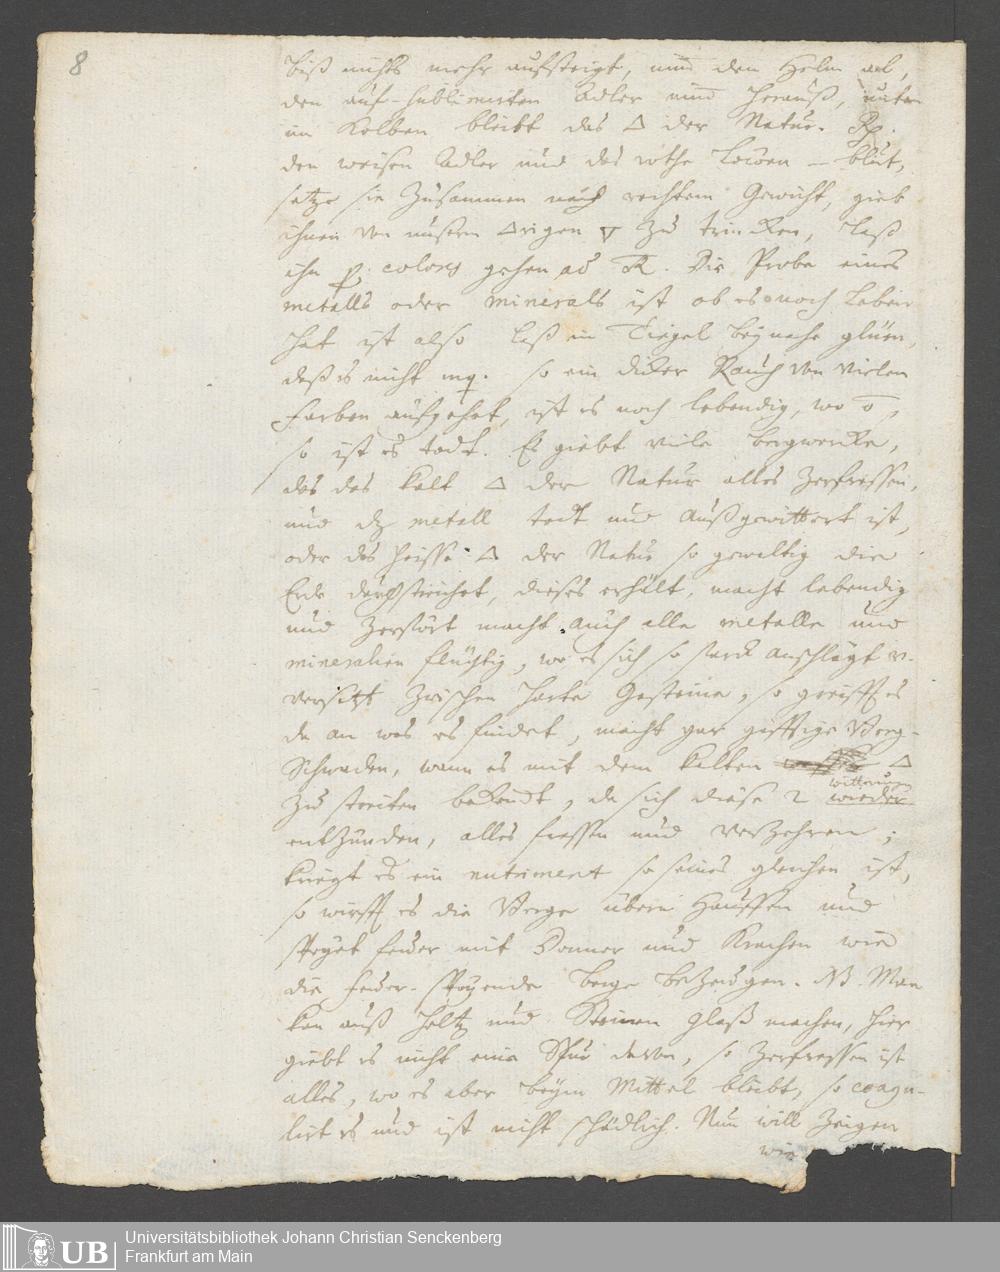 8
biß nichts mehr aufsteigt, nim̄ den Helm ab,
den auf-sublimirten Adler nim̄ herauß, unten
im Kolben bleibt das 🜂 der Natur. Rp.
den weisen Adler und das rothe Löwen-blut,
setze sie zusammen nach rechtem Gewicht, gieb
ihnen von unsern 🜂rigen 🜄 zu trincken, laß
ihn p colores gehen ad R. Die Probe eines
metalls oder minerals ist ob es noch Leben
hat ist also laß ein Tiegel beynahe glüen,
daß es nicht so ein dicker Rauch von vielen
farben aufgehet, ist es noch lebendig, wo ō,
so ist es todt. Es giebt viele bergwercke,
das das kalt 🜂 der Natur alles zerfressen,
und dz metall todt und außgewittert ist,
oder das heisse 🜂 der Natur so gewaltig die
Erde durchstreichet, dieses erhält, macht lebendig
und zerstört macht auch alle metalle und
mineralien flüchtig, wo es sich so starck anschlägt u.
versitzt zwischen harte Gesteine, so greifft es
da an was es findet, macht gar gifftige Berg-
Schwaden, wann es mit dem kalten 🜂
zu streiten bekömt, da sich diese 2 wieder
witterung
entzünden, alles fressen und verzehren;
kriegt es ein nutriment so seines gleichen ist,
so wirfft es die Berge übern Hauffen und
speyet feuer mit Donner und Krachen wie
die feuer-speyende berge bezeugen. NB. Man
kan auß Holtz und Steinen glaß machen, hier
giebt es nicht eine Spur davon, so zerfressen ist
alles, wo es aber beym Mittel bleibt, so coagu-
lirt es und ist nicht schädlich. Nun will zeigen
wie
UB
Universitätsbibliothek Johann Christian Senckenberg
Frankfurt am Main